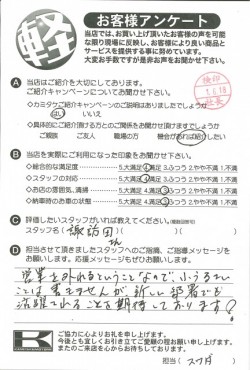 軽
お客様アンケート
当店では、お買い上げ頂いたお客様の声を可能
な限り現場に反映し、お客様により良い商品と
サービスを提供する事に努めています。
大変お手数ですが是非お声をお聞かせ下さい。
A 当店はご紹介を大切にしております。
ご紹介キャンペーンについてお聞かせ下さい。
はい いいえ
ご親戚 ご友人 職場の方 機会があれば紹介したい
B 当店を実際にご利用になった印象をお聞かせ下さい。
◇総合的な満足度 5.大満足 4.満足 3.ふつう 2.やや不満 1.不満
◇スタッフの対応 5.大満足 4.満足 3.ふつう 2.やや不満 1.不満
◇お店の雰囲気、清掃 5.大満足 4.満足 3.ふつう 2.やや不満 1.不満
◇納車時のお車の状態 5.大満足 4.満足 3.ふつう 2.やや不満 1.不満
C 評価したいスタッフがいれば教えてください。
スタッフ名( 諏訪田さん )
D 担当させて頂きましたスタッフへのご指摘、ご応援メッセージを
お願いします。ご応援メッセージもぜひお願いします。
営業を外れるということなので、
ことは言えませんが 新しい部署でも
活躍されることを期待しております!
K
ご協力に心よりお礼を申し上げます。
今後とも宜しくお引き立てご愛顧の程お願い申し上げます。
またのご来店を心からお待ちしております。
担当( スワダ )